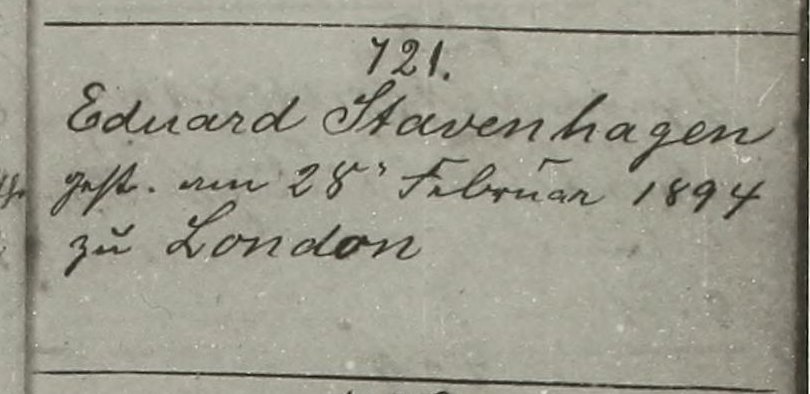 721.
Eduard Stavenhagen
gest. am 28' Februar 1894
zu London